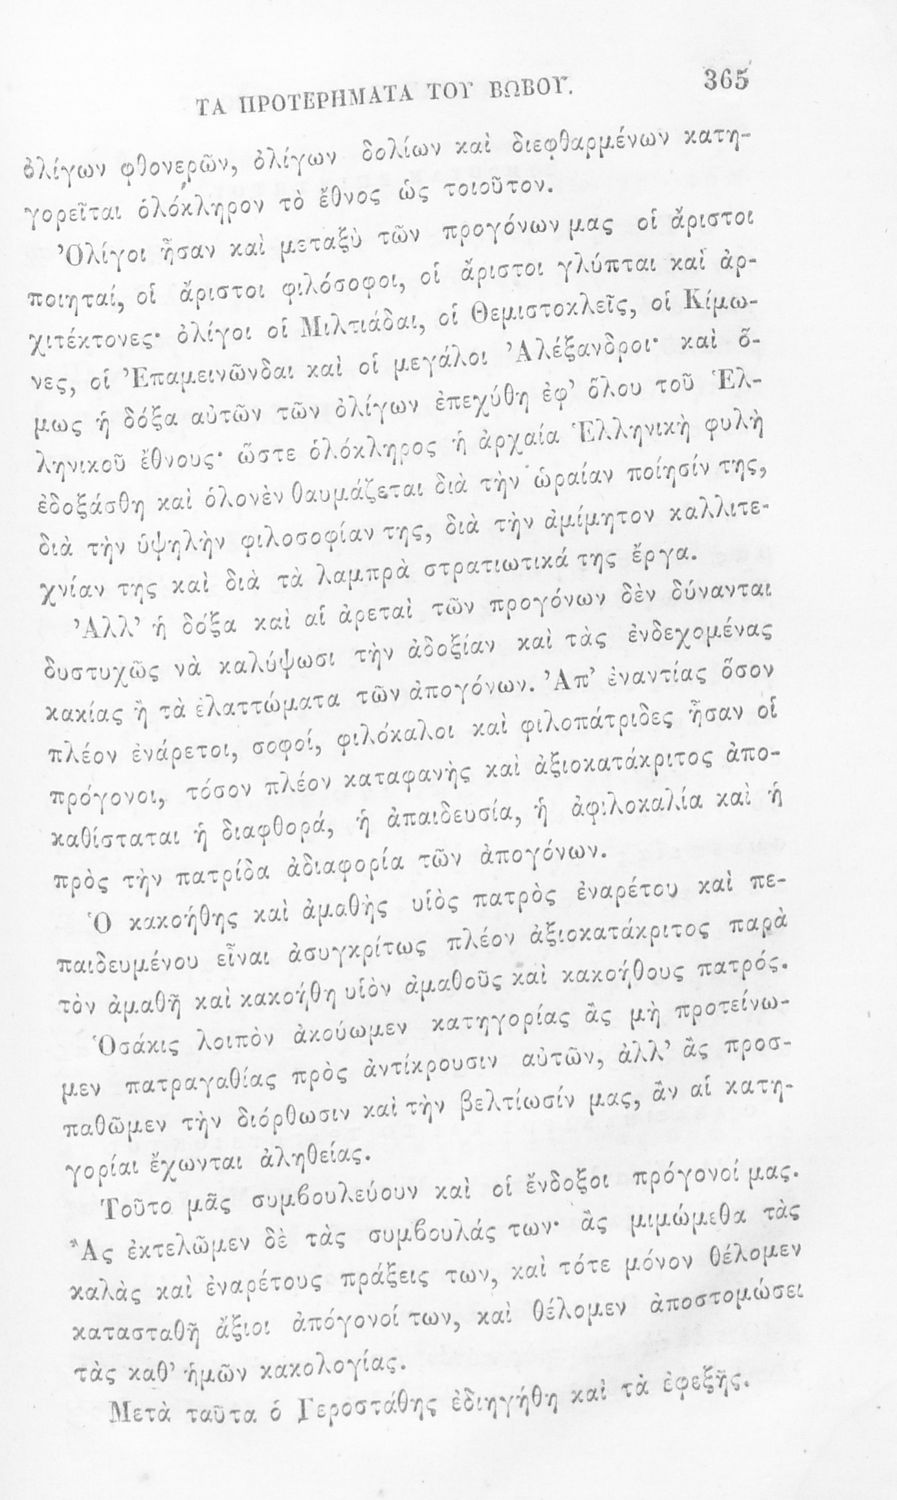 ΤΑ ΠΡΟΤΕΡΗΜΑΤΑ ΤΟΥ ΒΩΒΟΥ. 365
ὀλίγων φθονερῶν, ὀλίγων δολίων καὶ διεφθαρμένων κατη-
γορεῖται ὁλόκληρον τὸ ἔθνος ὡς τοιοῦτον.
Ὀλίγοι ἦσαν καὶ μεταξὺ τῶν προγόνων μας οἱ ἄριστοι
ποιηταί, οἱ ἄριστοι φιλόσοφοι, οἱ ἄριστοι γλύπται καὶ ἀρ-
χιτέκτονες· ὀλίγοι οἱ Μιλτιάδαι, οἱ Θεμιστοκλεῖς, οἱ Κίμω-
νες, οἱ Ἐπαμεινῶνδαι καὶ οἱ μεγάλοι Ἀλέξανδροι· καὶ ὅ-
μως ἡ δόξα αὐτῶν τῶν ὀλίγων ἐπεχύθη ἐφ' ὅλου τοῦ Ἑλ-
ληνικοῦ ἔθνους· ὥστε ὁλόκληρος ἡ ἀρχαία Ἑλληνικὴ φυλὴ
ἐδοξάσθη καὶ ὁλονὲν θαυμάζεται διὰ τὴν ὡραίαν ποίησίν της,
διὰ τὴν ὑψηλὴν φιλοσοφίαν της, διὰ τὴν ἀμίμητον καλλιτε-
χνίαν της καὶ διὰ τὰ λαμπρὰ στρατιωτικά της ἔργα.
Ἀλλ' ἡ δόξα καὶ αἱ ἀρεταὶ τῶν προγόνων δὲν δύνανται
δυστυχῶς νὰ καλύψωσι τὴν ἀδοξίαν καὶ τὰς ἐνδεχομένας
κακίας ἢ τὰ ἐλαττώματα τῶν ἀπογόνων. Ἀπ' ἐναντίας ὅσον
πλέον ἐνάρετοι, σοφοί, φιλόκαλοι καὶ φιλοπάτριδες ἦσαν οἱ
πρόγονοι, τόσον πλέον καταφανὴς καὶ ἀξιοκατάκριτος ἀπο-
καθίσταται ἡ διαφθορά, ἡ ἀπαιδευσία, ἡ ἀφιλοκαλία καὶ ἡ
πρὸς τὴν πατρίδα ἀδιαφορία τῶν ἀπογόνων.
Ὁ κακοήθης καὶ ἀμαθὴς υἱὸς πατρὸς ἐναρέτου καὶ πε-
παιδευμένου εἶναι ἀσυγκρίτως πλέον ἀξιοκατάκριτος παρὰ
τὸν ἀμαθῆ καὶ κακοήθη υἱὸν ἀμαθοῦς καὶ κακοήθους πατρός.
Ὁσάκις λοιπὸν ἀκούωμεν κατηγορίας ἂς μὴ προτείνω-
μεν πατραγαθίας πρὸς ἀντίκρουσιν αὐτῶν, ἀλλ' ἂς προσ-
παθῶμεν τὴν διόρθωσιν καὶ τὴν βελτίωσίν μας, ἂν αἱ κατη-
γορίαι ἔχωνται ἀληθείας.
Τοῦτο μᾶς συμβουλεύουν καὶ οἱ ἔνδοξοι πρόγονοί μας.
Ἂς ἐκτελῶμεν δὲ τὰς συμβουλάς των· ἂς μιμώμεθα τὰς
καλὰς καὶ ἐναρέτους πράξεις των, καὶ τότε μόνον θέλομεν
κατασταθῆ ἄξιοι ἀπόγονοί των, καὶ θέλομεν ἀποστομώσει
τὰς καθ' ἡμῶν κακολογίας.
Μετὰ ταῦτα ὁ Γεροστάθης ἐδιηγήθη καὶ τὰ ἐφεξῆς.